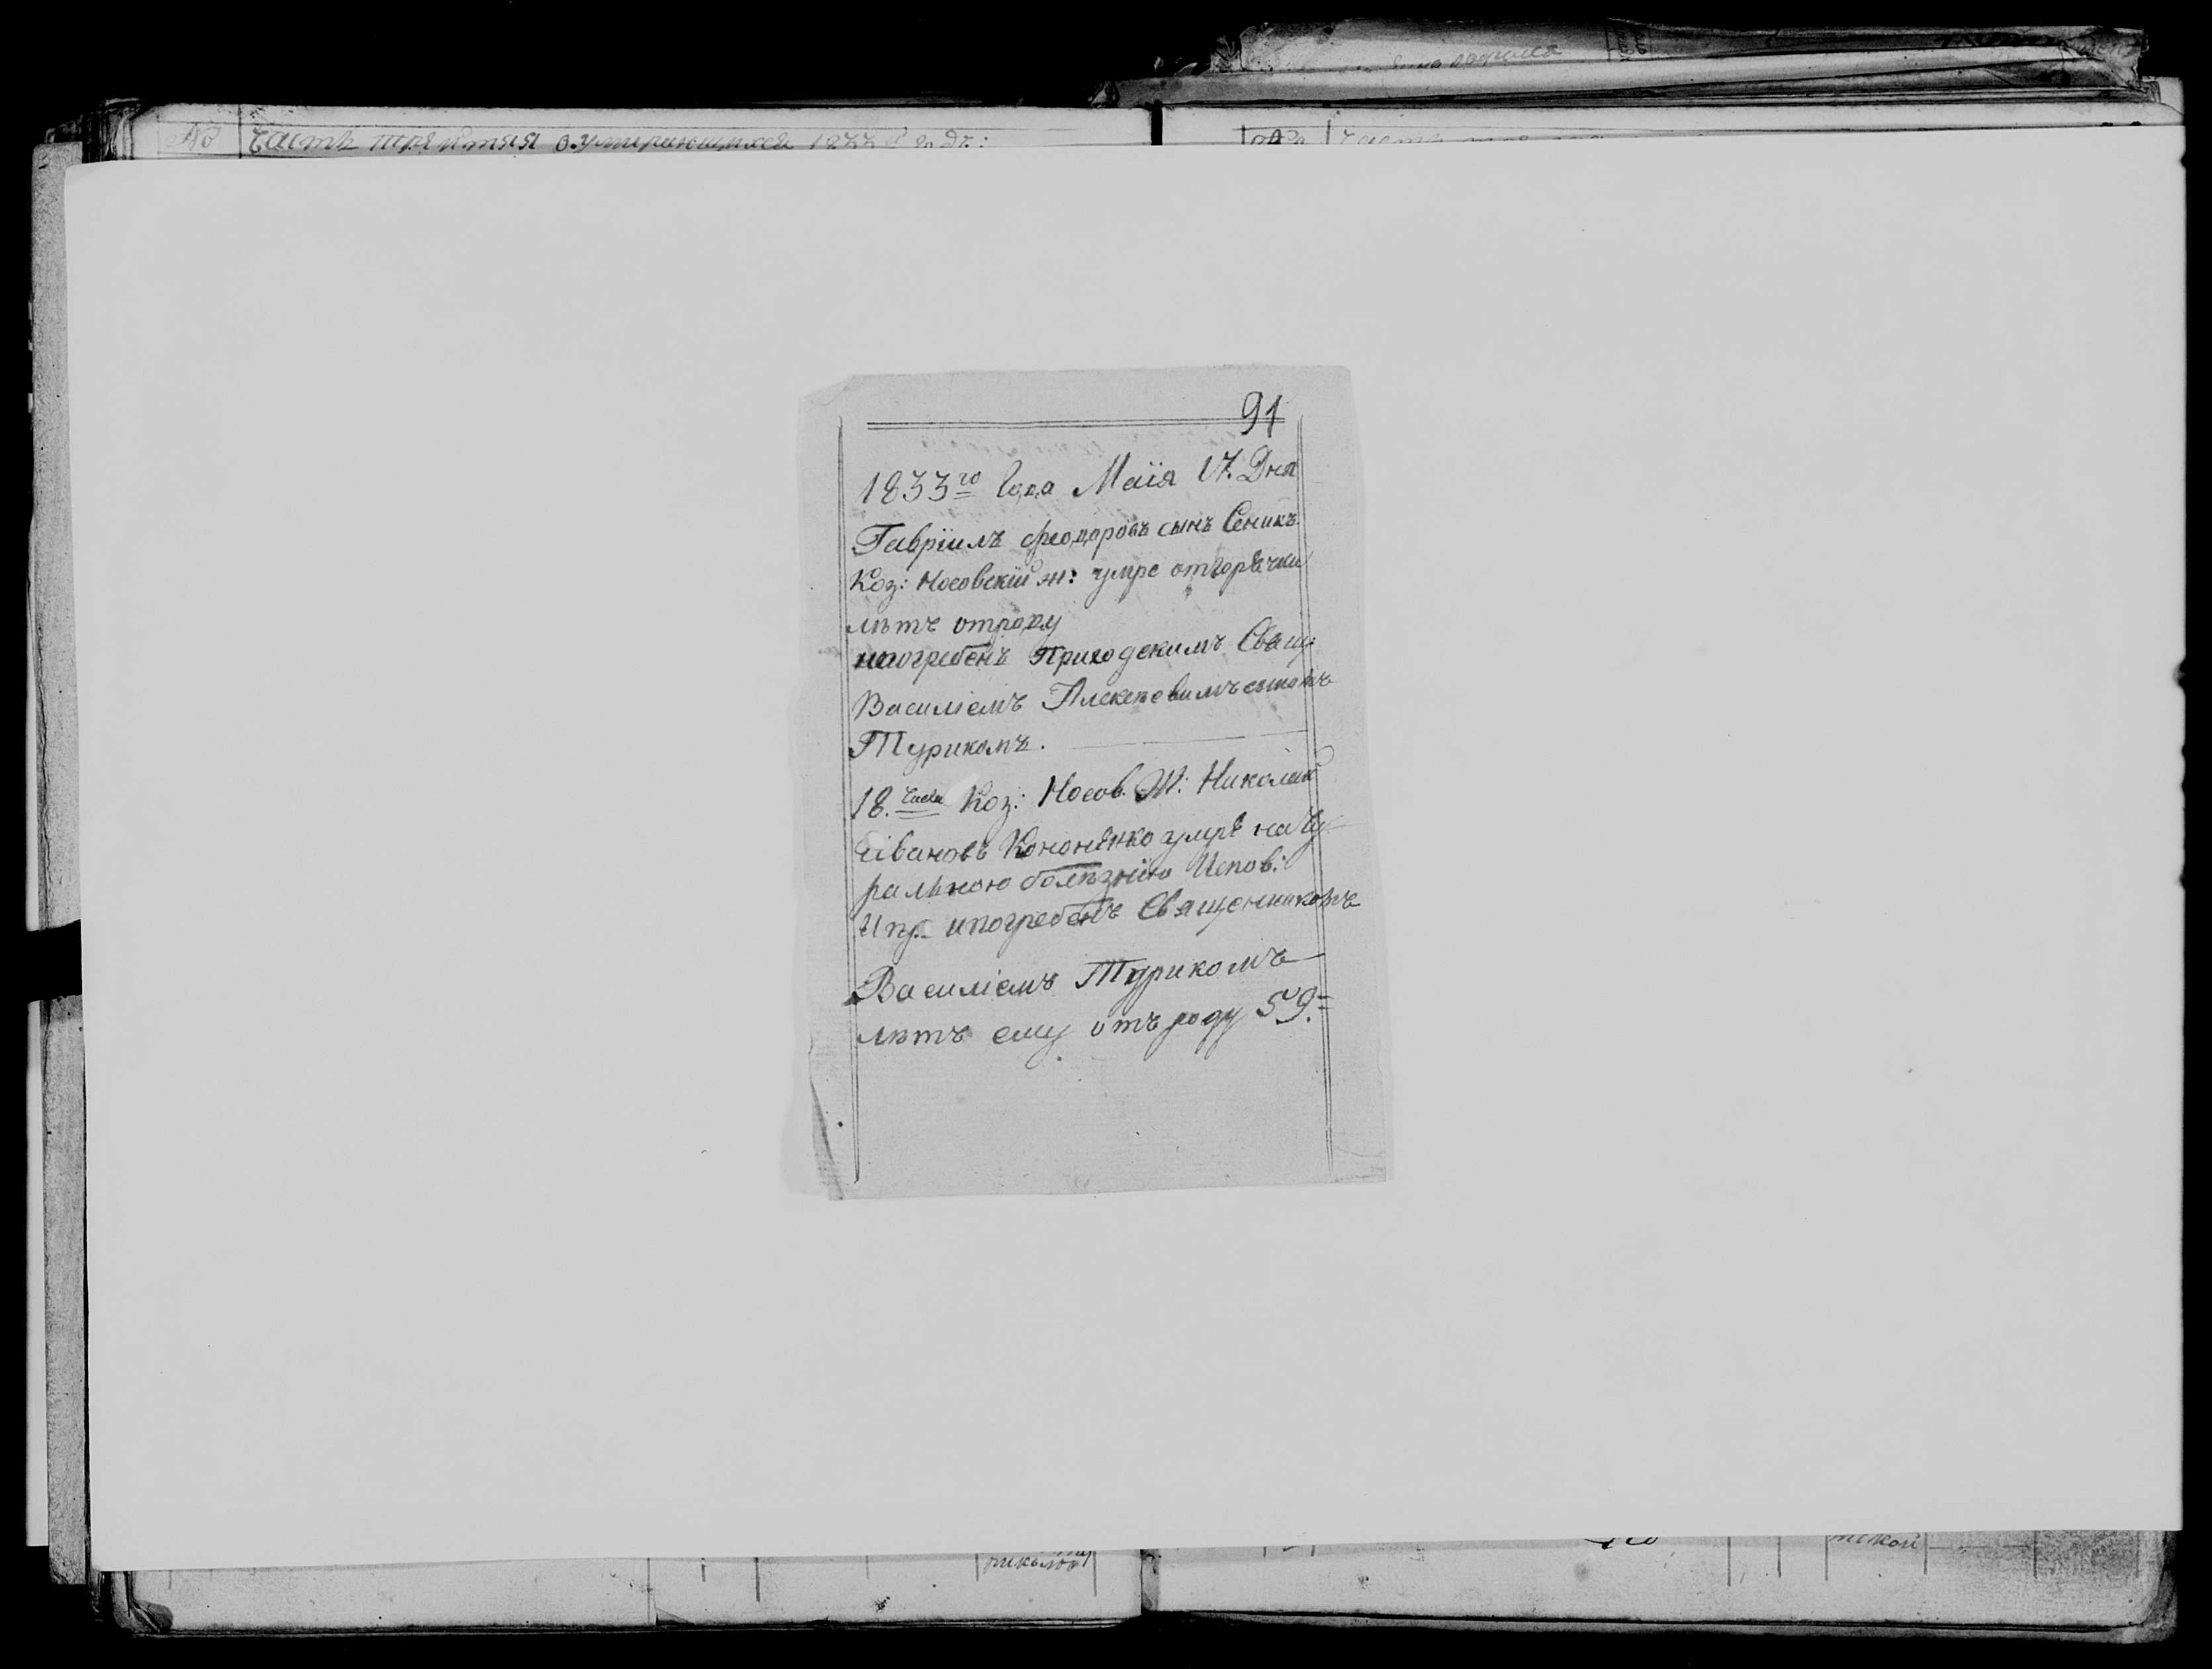 Часть третяя о умирающихся 1833 годѣ:
91
1833го Года Маїя 17. Дня
Гавріилъ Феодоровъ сынъ Сеникъ
Коз: Носовскій ж: умре отгорячки
лѣтъ отроду
ипогребенъ Приходскимъ Свящ:
Василіемъ Алексѣевимъ
Турикомъ.
18. Коз: Носов. Ж: Николай
Івановъ Кононенко умре нату
ральною болѣзнію Испов:
И пр. ипогребенъ Священникомъ
Василіемъ Турикомъ
лѣтъ ему отъ роду 59.